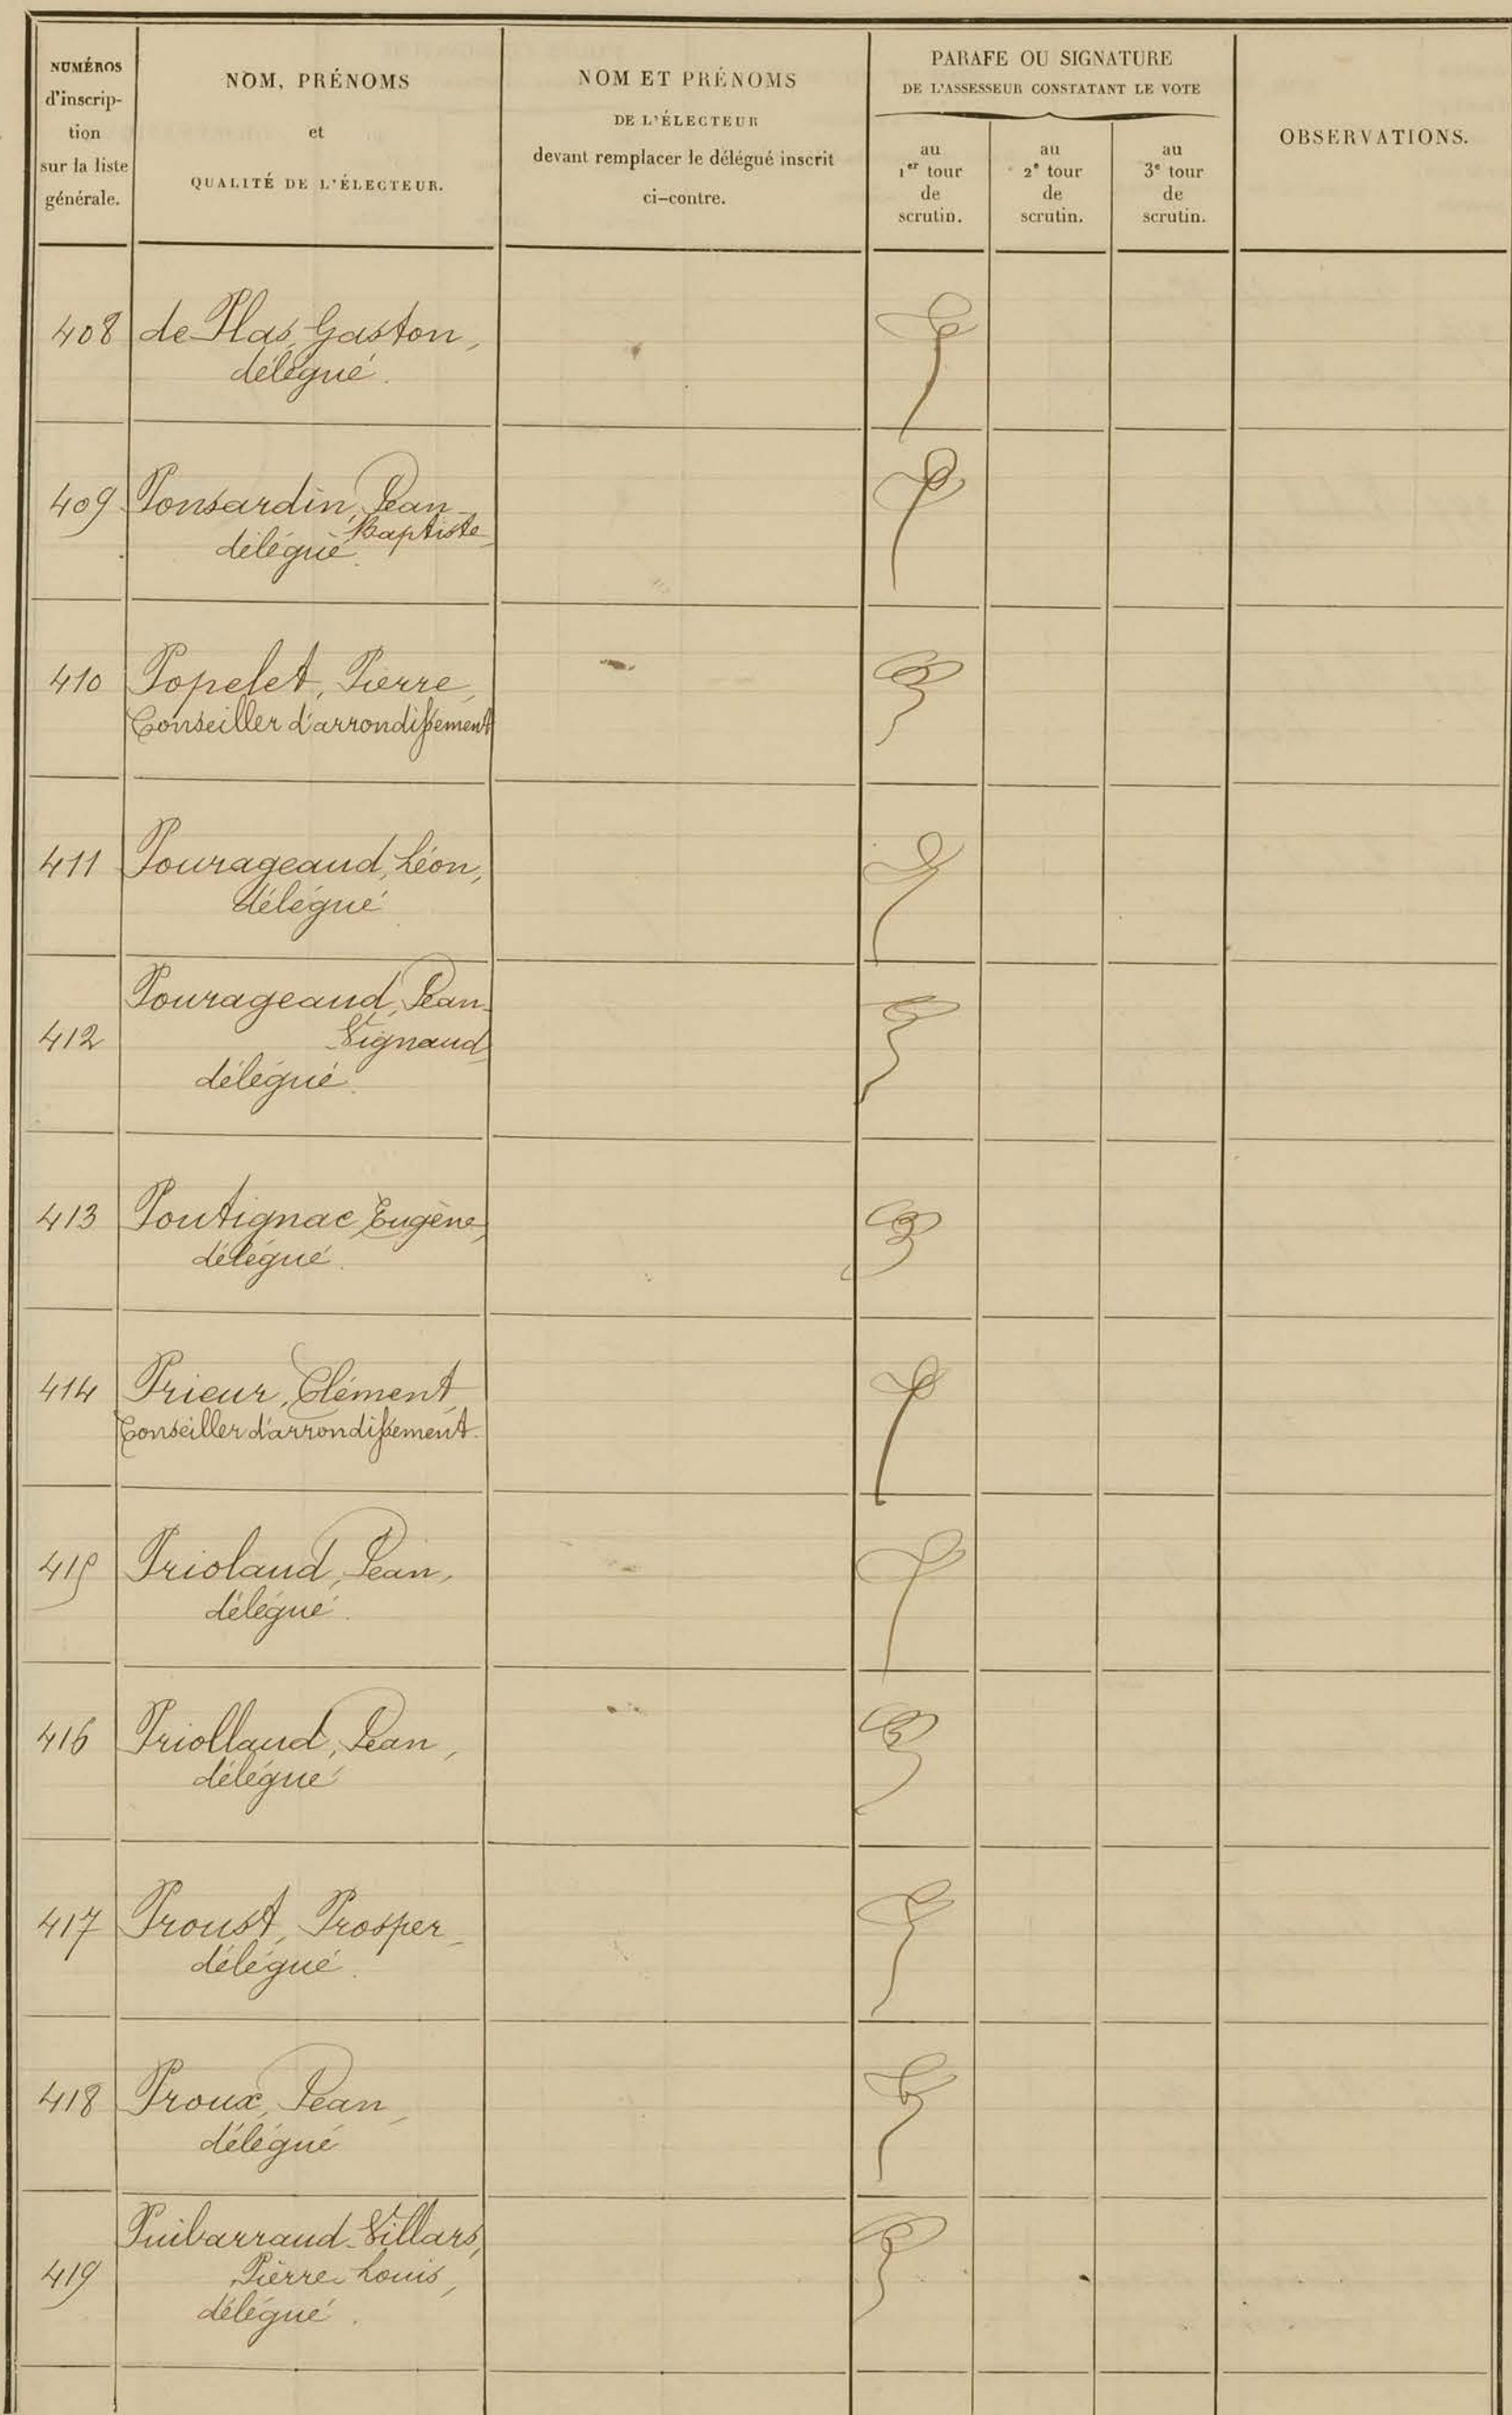 NUMÉROS
d'inscrip-
tion
sur la liste
générale.
NOM, PRÉNOMS
et
QUALITÉ DE L'ÉLECTEUR.
NOM ET PRÉNOMS
DE L'ÉLECTEUR
devant remplacer le délégué inscrit
ci-contre.
PARAFE OU SIGNATURE
DE L'ASSESSEUR CONSTATANT LE VOTE
au
1er tour
de
scrutin.
au
2e tour
de
scrutin.
au
3e tour
de
scrutin.
OBSERVATIONS.
408 de Plas, Gaston,
délégué.
409 Ponsardin, Jean-
Baptiste,
délégué.
410 Popelet, Pierre,
Conseiller d'arrondissement
411 Pourageaud, Léon,
délégué
Pourageaud, Jean-
412 Vignaud,
délégué.
413 Poutignac, Eugène,
délégué.
414 Prieur, Clément,
Conseiller d'arrondissement.
415 Prioland, Jean,
délégué.
416 Priolland, Jean,
délégué
417 Proust, Prosper,
délégué.
418 Proux, Jean,
délégué
Puibarraud-Villars,
419 Pierre-Louis,
délégué.